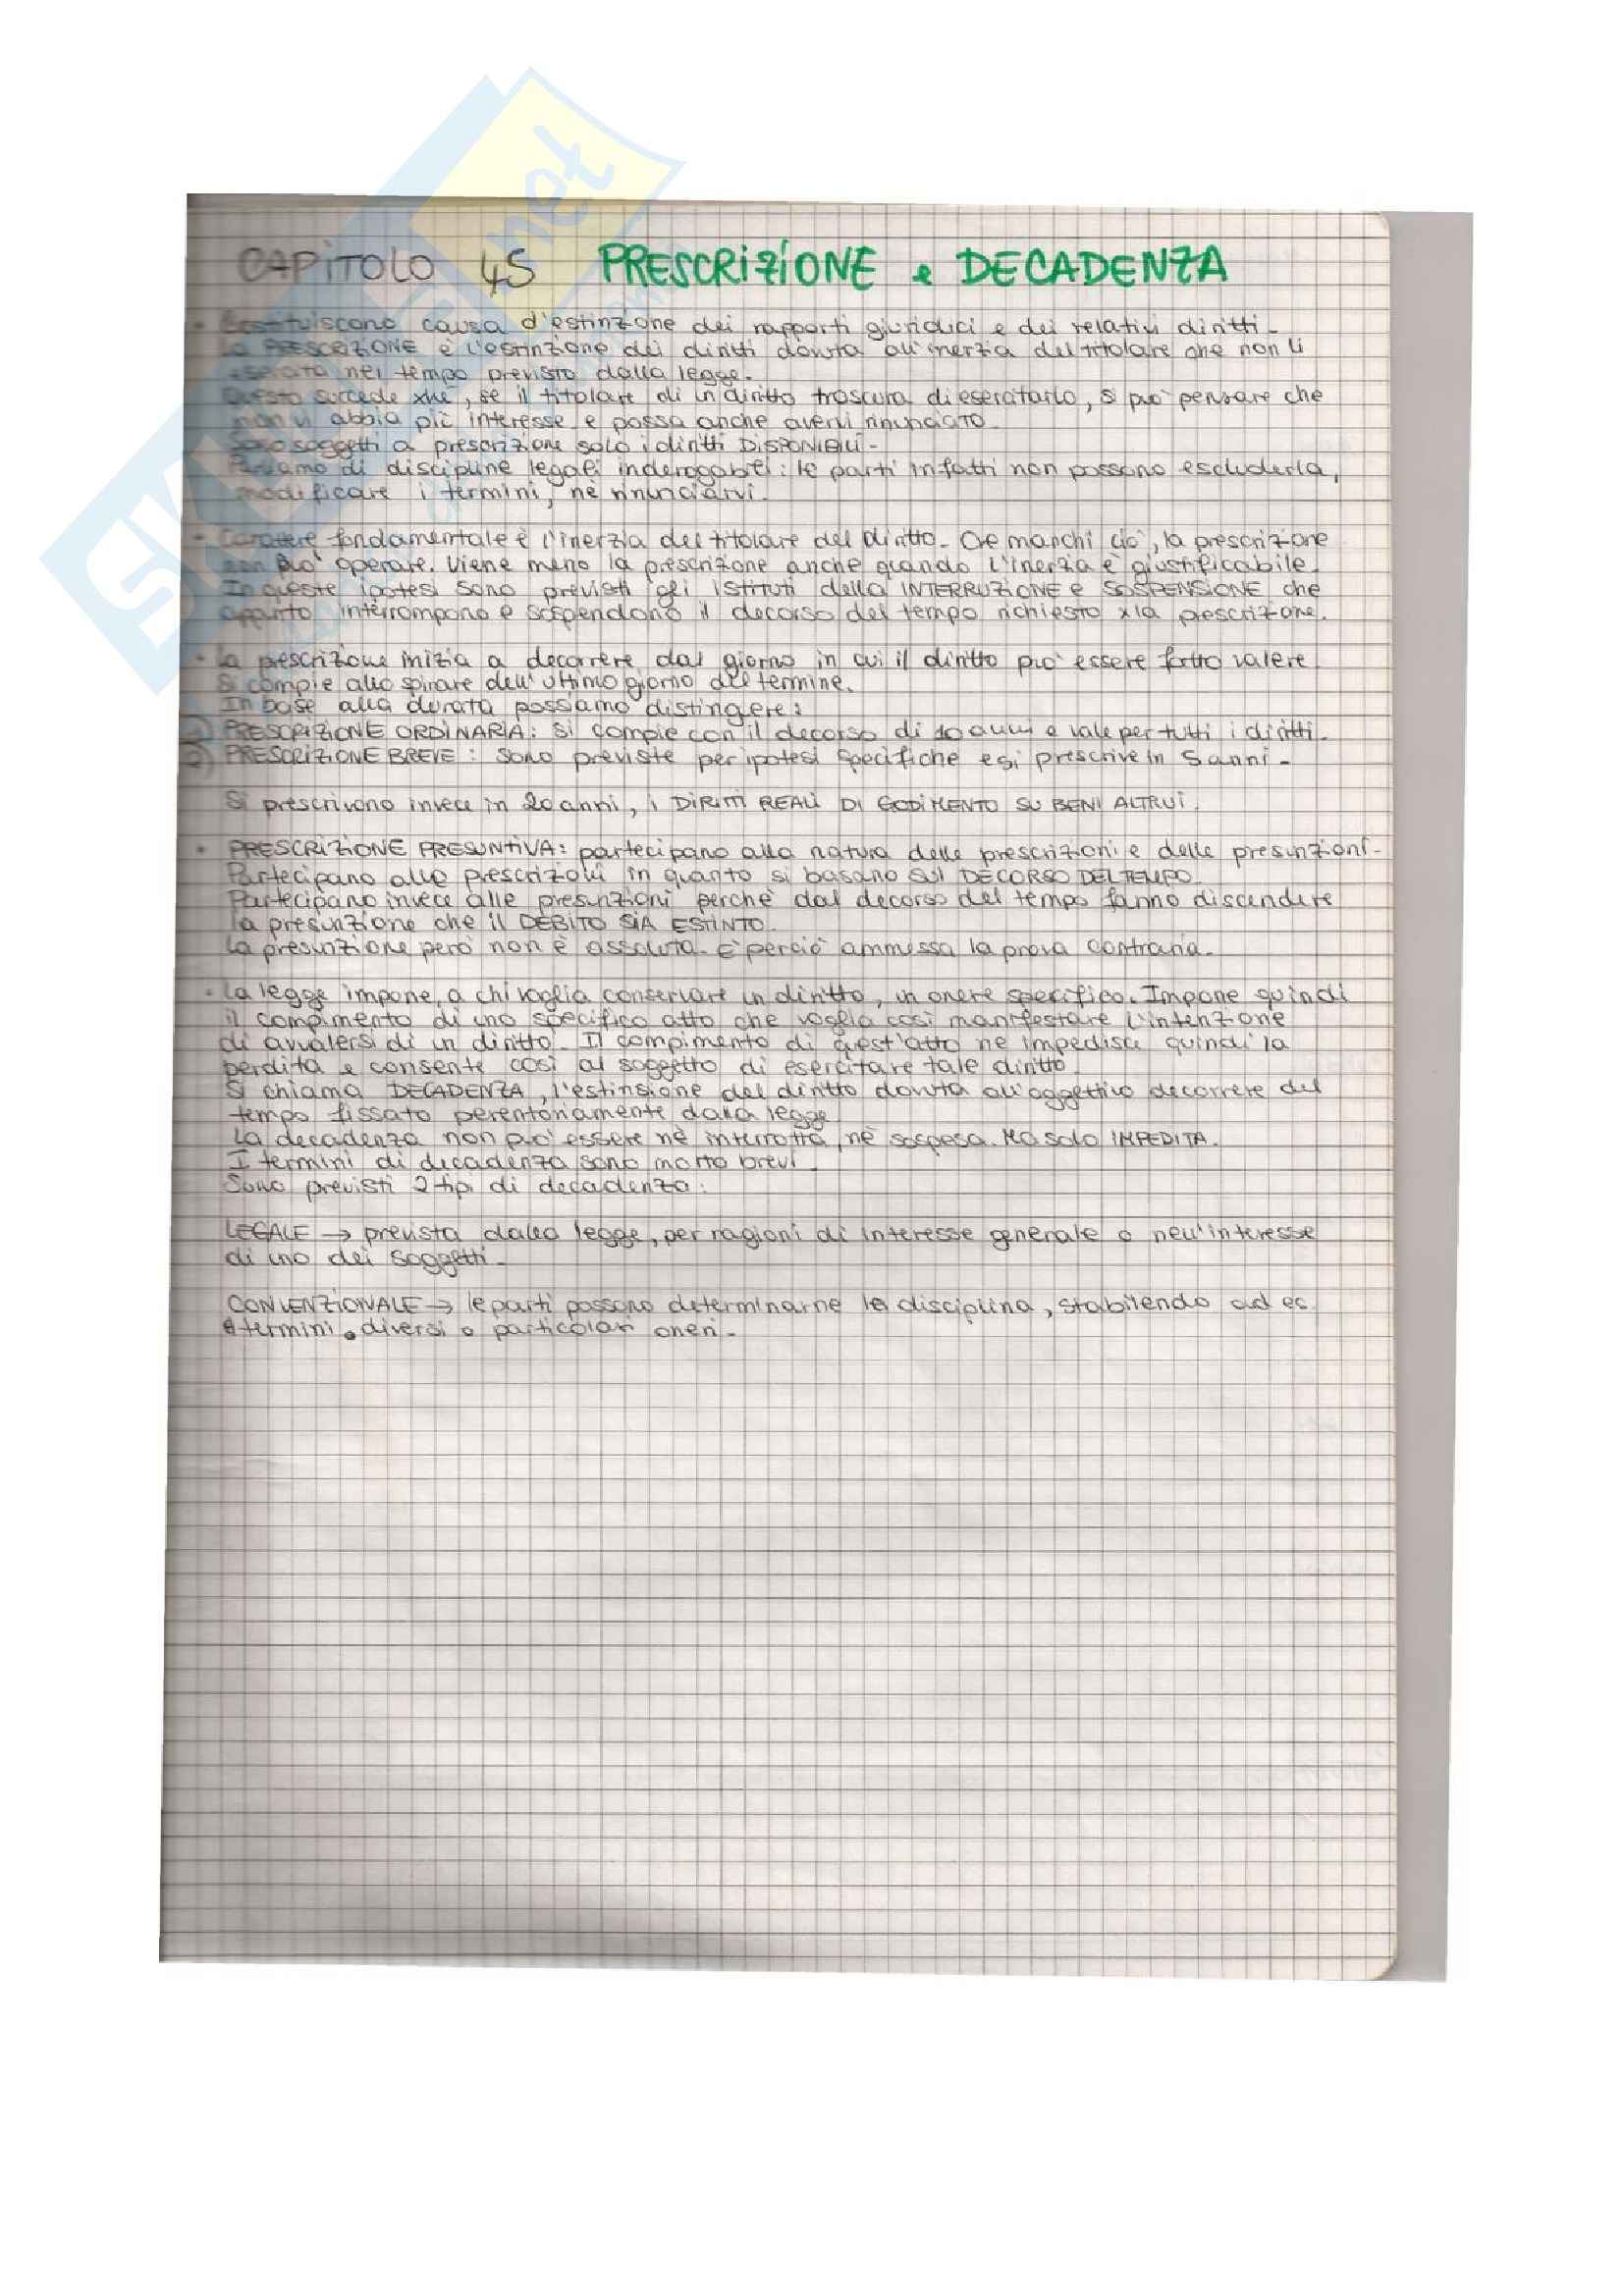 CAPITOLO 45 PRESCRIZIONE e DECADENZA
• Costituiscono causa d'estinzione dei rapporti giuridici e dei relativi diritti.
La PRESCRIZIONE è l'estinzione dei diritti dovuta all'inerzia del titolare che non li
esercita nel tempo previsto dalla legge.
Questo succede xké, se il titolare di un diritto trascura di esercitarlo, si può pensare che
non vi abbia più interesse e possa anche avervi rinunciato.
Sono soggetti a prescrizione solo i diritti DISPONIBILI.
Parliamo di discipline legali inderogabili: le parti infatti non possono escluderla,
modificare i termini, nè rinunciarvi.
- Carattere fondamentale è l'inerzia del titolare del diritto. Ove manchi ciò, la prescrizione
non può operare. Viene meno la prescrizione anche quando l'inerzia è giustificabile.
In queste ipotesi sono previsti gli istituti della INTERRUZIONE e SOSPENSIONE che
appunto interrompono e sospendono il decorso del tempo richiesto x la prescrizione.
• La prescrizione inizia a decorrere dal giorno in cui il diritto può essere fatto valere.
Si compie allo spirare dell'ultimo giorno del termine.
In base alla durata possiamo distingere:
1) PRESCRIZIONE ORDINARIA: si compie con il decorso di 10 anni e vale per tutti i diritti.
2) PRESCRIZIONE BREVE: sono previste per ipotesi specifiche e si prescrive in 5 anni.
Si prescrivono invece in 20 anni, i DIRITTI REALI DI GODIMENTO SU BENI ALTRUI.
• PRESCRIZIONE PRESUNTIVA: partecipano alla natura delle prescrizioni e delle presunzioni.
Partecipano alle prescrizioni in quanto si basano sul DECORSO DEL TEMPO.
Partecipano invece alle presunzioni perchè dal decorso del tempo fanno discendere
la presunzione che il DEBITO SIA ESTINTO.
La presunzione però non è assoluta. E' perciò ammessa la prova contraria.
• La legge impone, a chi voglia conservare un diritto, un onere specifico. Impone quindi
il compimento di uno specifico atto che voglia così manifestare l'intenzione
di avvalersi di un diritto. Il compimento di quest'atto ne impedisce quindi la
perdita e consente così al soggetto di esercitare tale diritto.
Si chiama DECADENZA, l'estinsione del diritto dovuta all'oggettivo decorrere del
tempo fissato perentoriamente dalla legge.
La decadenza non può essere nè interrotta, nè sospesa. Ma solo IMPEDITA.
I termini di decadenza sono molto brevi.
Sono previsti 2 tipi di decadenza:
LEGALE → prevista dalla legge, per ragioni di interesse generale o nell'interesse
di uno dei soggetti.
CONVENZIONALE → le parti possono determinarne la disciplina, stabilendo ad es.
termini diversi o particolari oneri.